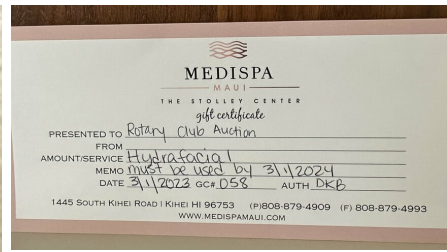 MEDISPA
MAUI
THE STOLLEY CENTER
gift certificate
PRESENTED TO Rotary Club Auction
FROM
AMOUNT/SERVICE Hydrafacial
MEMO must be used by 3/1/2024
DATE 3/1/2023 GC# 058 AUTH DKB
1445 SOUTH KIHEI ROAD | KIHEI HI 96753 (P)808-879-4909 (F) 808-879-4993
WWW.MEDISPAMAUI.COM